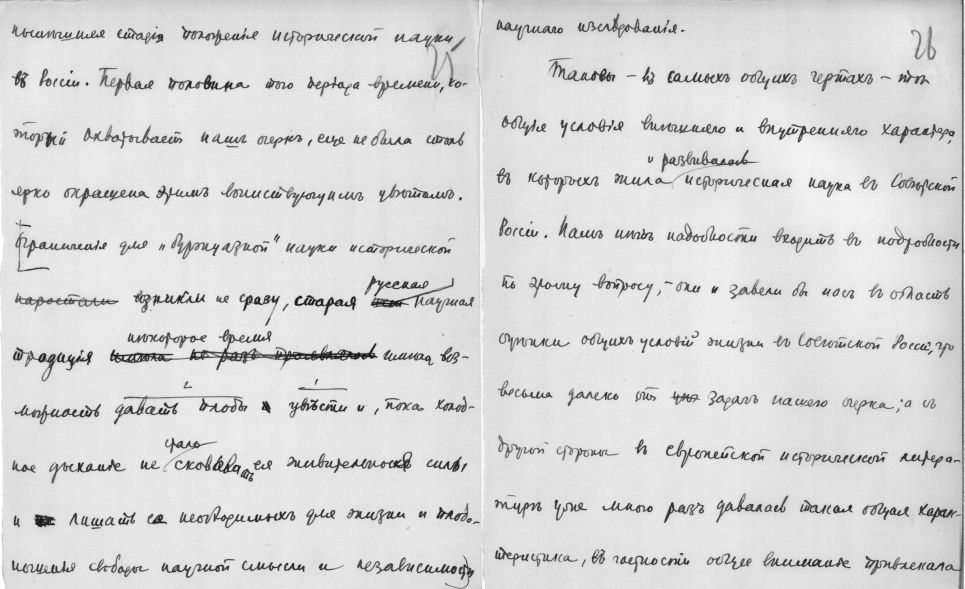 нынѣшняя стадія положенія исторической науки
25
въ Россіи. Первая половина того періода времени, ко-
торый охватываетъ нашъ очеркъ, еще не была столь
ярко окрашена этимъ воинствующимъ цвѣтомъ.
Ограниченія для „буржуазной" науки исторической
наростали возникли не сразу, старая русская научная
традиція некоторое время имѣла воз-
можность давать плоды и цвѣсти, пока холод-
ное дыханіе не стало сковывать ея живительной силы
и лишать ея необходимыхъ для жизни и плодо-
ношенія свободы научной мысли и независимости
26
научнаго изслѣдованія.
Таковы – въ самыхъ общихъ чертахъ – тѣ
общія условія внѣшняго и внутренняго характера,
въ которыхъ жила и развивалась историческая наука въ Совѣтской
Россіи. Намъ нѣтъ надобности входить въ подробности
по этому вопросу, – они и завели бы насъ въ область
оцѣнки общихъ условій жизни въ Совѣтской Россіи, что
весьма далеко отъ задачъ нашего очерка; а съ
другой стороны въ европейской исторической литера-
турѣ уже много разъ давалась такая общая харак-
теристика, въ частности общее вниманіе привлекала